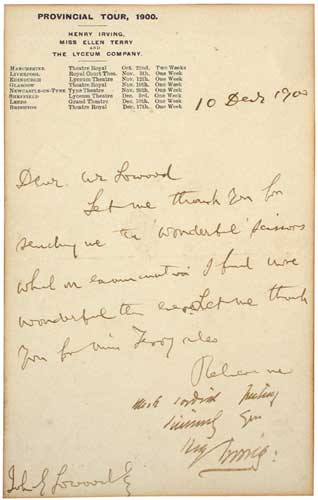 PROVINCIAL TOUR, 1900.
HENRY IRVING,
MISS ELLEN TERRY
AND
THE LYCEUM COMPANY.
MANCHESTER Theatre Royal Oct. 22nd, Two Weeks
LIVERPOOL Royal Court Thea. Nov. 5th, One Week
EDINBURGH Lyceum Theatre Nov. 12th, One Week
GLASGOW Theatre Royal Nov. 19th, One Week
NEWCASTLE-ON-TYNE Tyne Theatre Nov. 26th, One Week
SHEFFIELD Lyceum Theatre Dec. 3rd, One Week
LEEDS Grand Theatre Dec. 10th, One Week
BRIGHTON Theatre Royal Dec. 17th, One Week
10 Decr 1900
Dear Mr Lowood
Let me thank you for
sending me the 'wonderful' scissors
which on examination I find more
wonderful than ever. Let me thank
you for Miss Terry also
Believe me
With cordial
Sincerely Yours
Hy Irving.
John G Lowood Esq